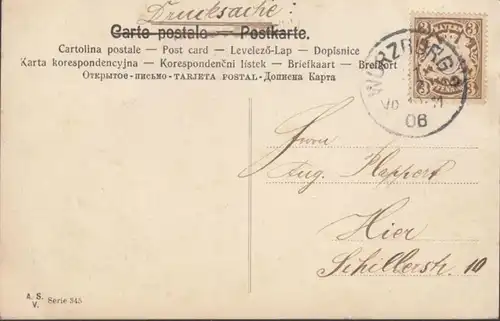 Drucksache:
Carte postale — Postkarte.
Cartolina postale — Post card — Levelező-Lap — Dopisnice
Karta korespondencyjna — Korespondenční lístek — Briefkaart — Brefkort
Открытое-письмо-TARJETA POSTAL-Дописна Карта
3 3
WÜRZBURG
06
3 PFENNIG 3
Herrn
Aug. Plappert
Hier
Schillerstr. 10
A. S.
V. Serie 545